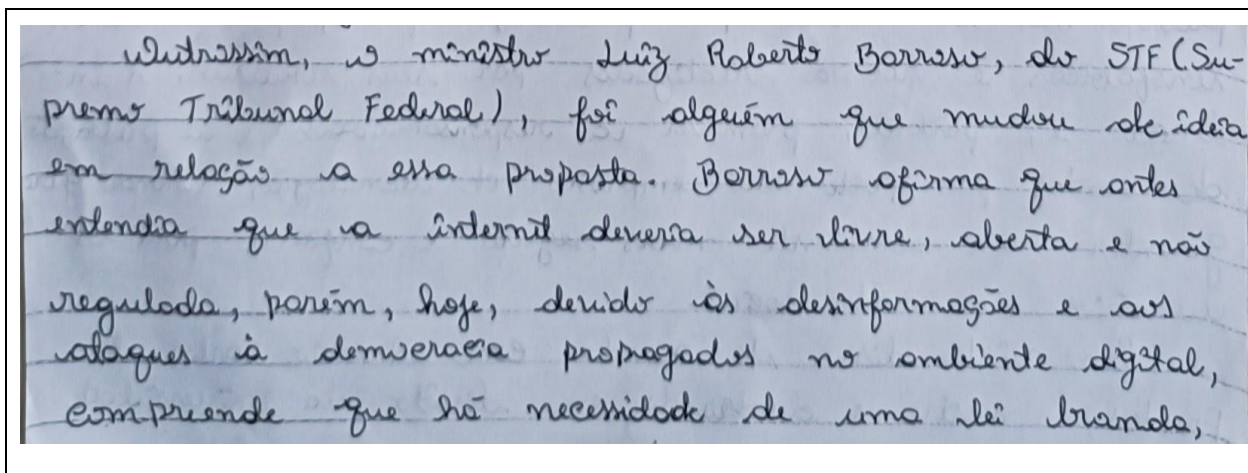 Outrossim, o ministro Luiz Roberto Barroso, do STF (Su-
premo Tribunal Federal), foi alguém que mudou de ideia
em relação a essa proposta. Barroso afirma que antes
entendia que a internet deveria ser livre, aberta e não
regulada, porém, hoje, devido às desinformações e aos
ataques à democracia propagados no ambiente digital,
compreende que há necessidade de uma lei branda,